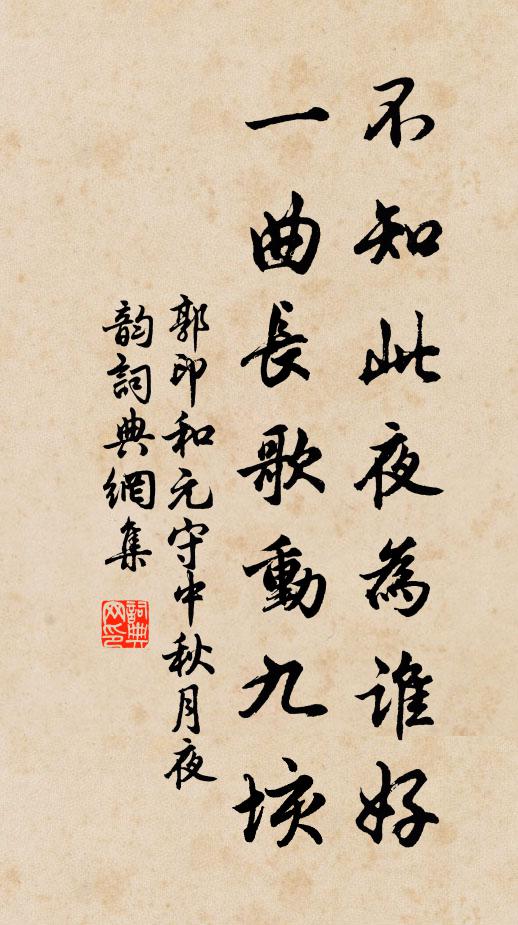 不知此夜為誰好
一曲長歌動九垓
郭印和元守中秋月夜
韵詞典網集
詞典网印